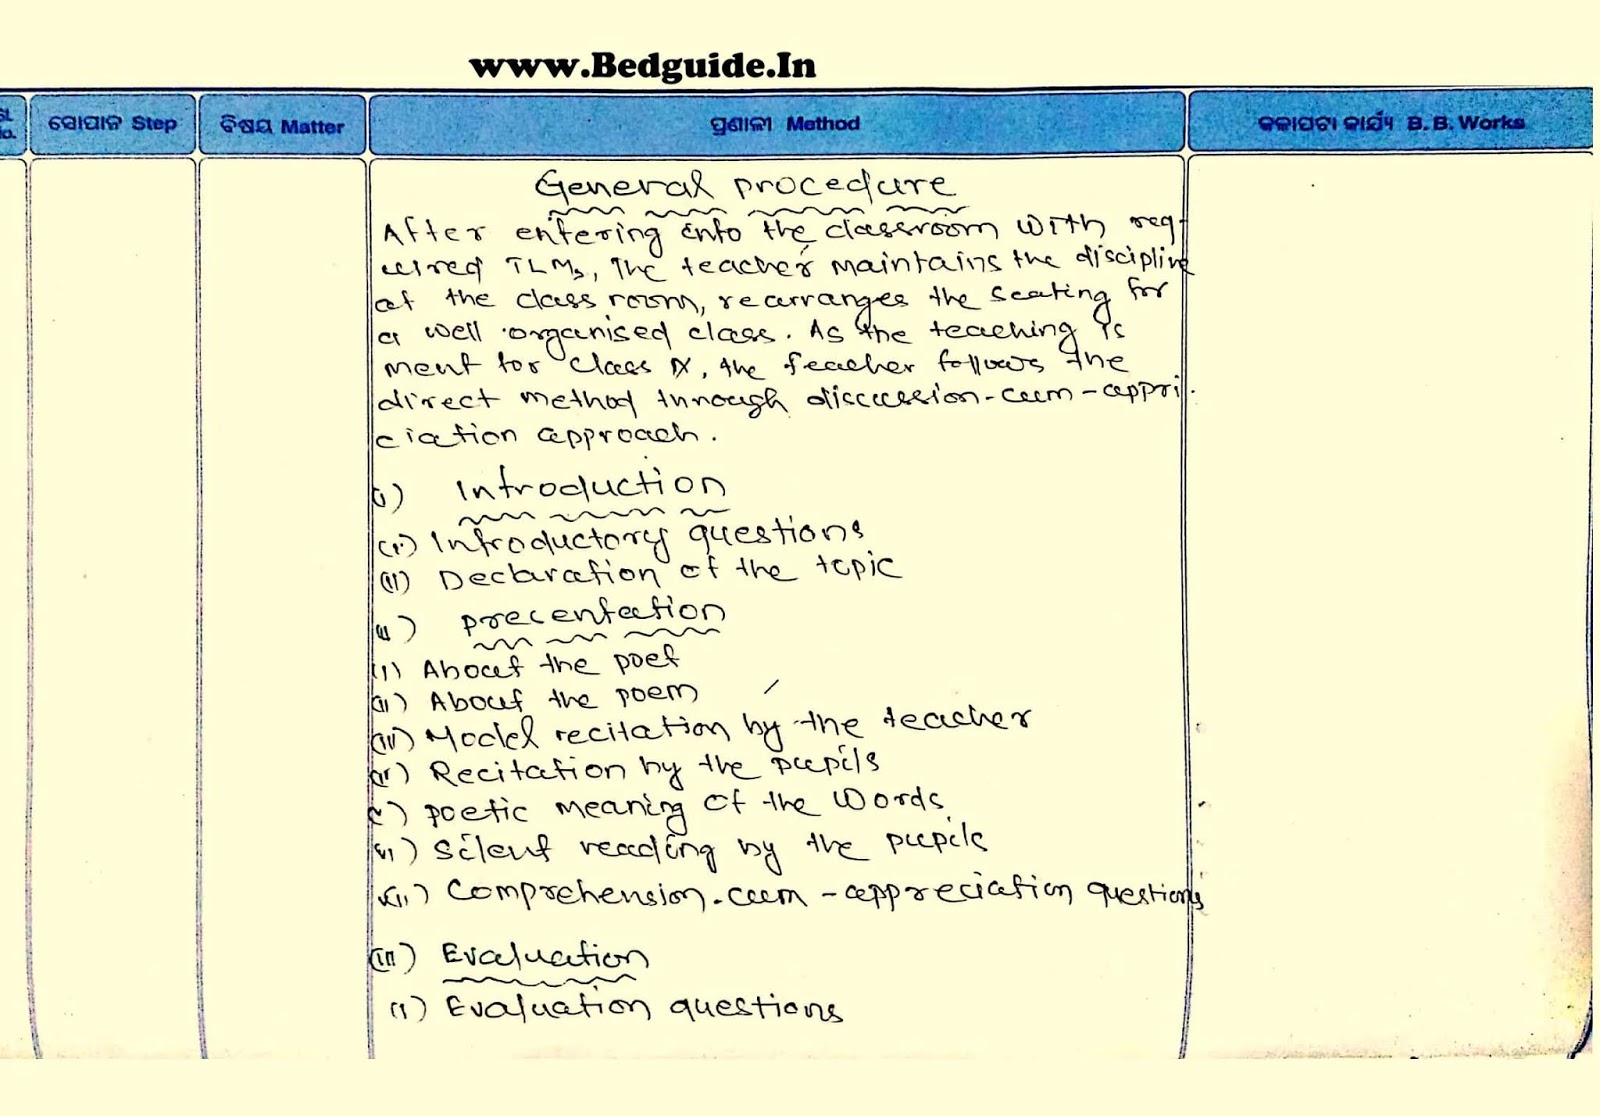 www.Bedguide.In
Sl. No.
ସୋପାନ Step
ବିଷୟ Matter
ପ୍ରଣାଳୀ Method
କଳାପଟା କାର୍ଯ୍ୟ B. B. Works
General procedure
After entering into the classroom with req-
uired TLMs, The teacher maintains the discipline
of the class room, rearranges the seating for
a well organised class. As the teaching is
ment for class IX, the teacher follows the
direct method through discussion-cum-appri-
ciation approach.
i) Introduction
(i) Introductory questions
(ii) Declaration of the topic
ii) presentation
(i) About the poet
(ii) About the poem
(iii) Model recitation by the teacher
(iv) Recitation by the pupils
v) poetic meaning of the words
vi) Silent reading by the pupils
vii) Comprehension-cum-appreciation questions
(iii) Evaluation
(i) Evaluation questions